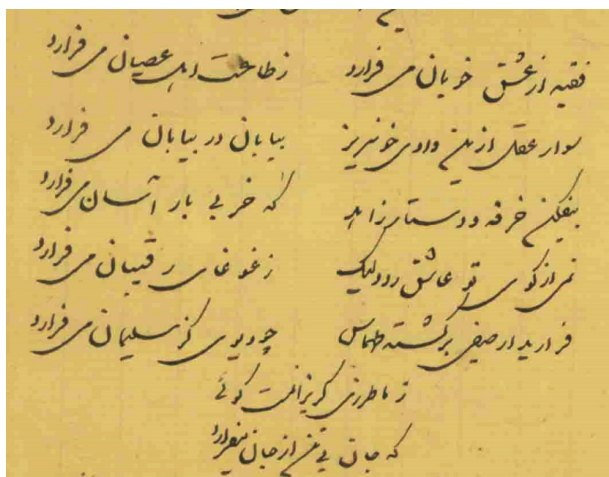 فقیه از عشق خوبان می فرارد
ز طاعت اهل عصیان می فرارد
سوار عقل ازین وادی خونریز
بیابان در بیابان می فرارد
بیفکن خرقه و دستار زاهد
که خر بی بار آسان می فرارد
نمی از کوی تو عاشق رود لیک
ز غوغای رقیبان می فرارد
فرارید از صفی برگشته
چو دیوی کز سلیمان می فرارد
ز ما طرزی گریزانست گوئی
که جان از جان میفرارد